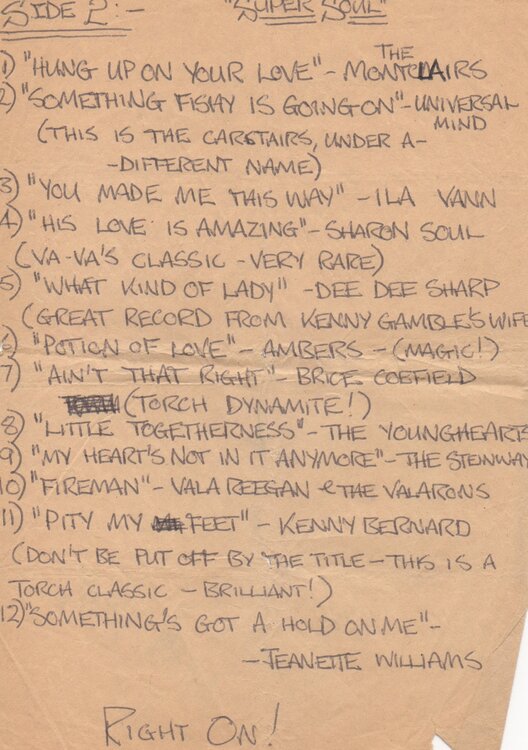 SIDE 2:- "SUPER SOUL"
1) "HUNG UP ON YOUR LOVE" - THE MONTCLAIRS
2) "SOMETHING FISHY IS GOING ON" - UNIVERSAL MIND
(THIS IS THE CARSTAIRS, UNDER A-
-DIFFERENT NAME)
3) "YOU MADE ME THIS WAY" - ILA VANN
4) "HIS LOVE IS AMAZING" - SHARON SOUL
(VA-VA'S CLASSIC - VERY RARE)
5) "WHAT KIND OF LADY" - DEE DEE SHARP
(GREAT RECORD FROM KENNY GAMBLE'S WIFE
6) "POTION OF LOVE" - AMBERS - (MAGIC!)
7) "AIN'T THAT RIGHT" - BRICE COEFIELD
(TORCH DYNAMITE!)
8) "LITTLE TOGETHERNESS" - THE YOUNGHEARTS
9) "MY HEART'S NOT IN IT ANYMORE" - THE STEINWAY
10) "FIREMAN" - VALA REEGAN & THE VALARONS
11) "PITY MY FEET" - KENNY BERNARD
(DON'T BE PUT OFF BY THE TITLE - THIS IS A
TORCH CLASSIC - BRILLIANT!)
12) "SOMETHING'S GOT A HOLD ON ME" -
- JEANETTE WILLIAMS
RIGHT ON!